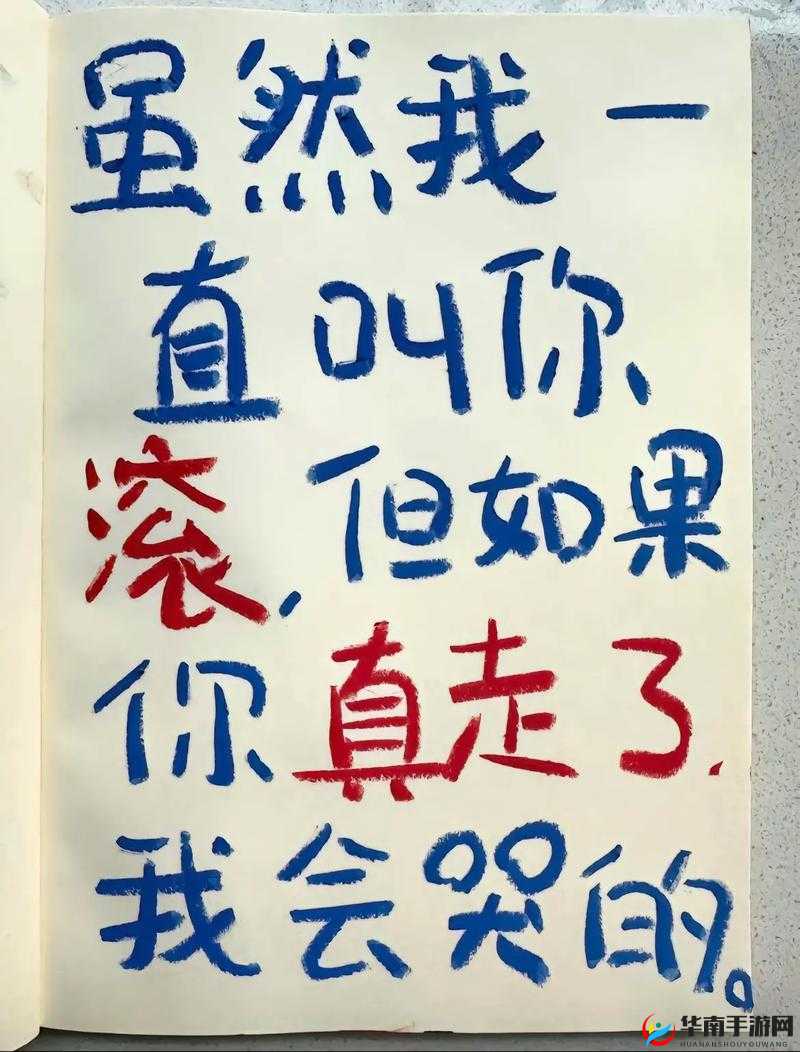 虽然我一
直叫你
滚,但如果
你真走了.
我会哭的。
华南手游网
HUANANSHOUYOUWANG